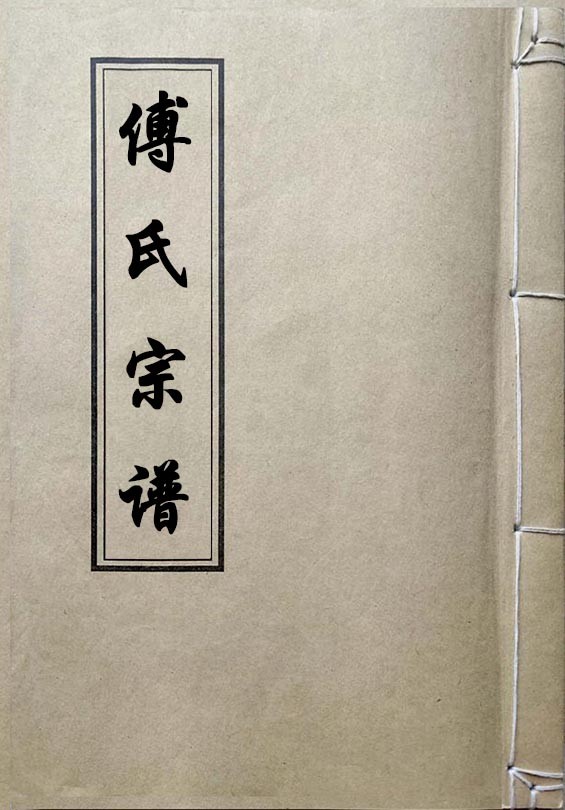 傅氏宗谱